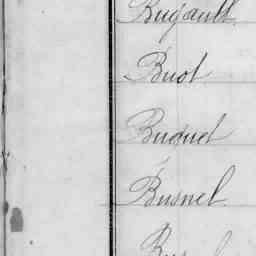 Bugault
Buot
Buquet
Busnel